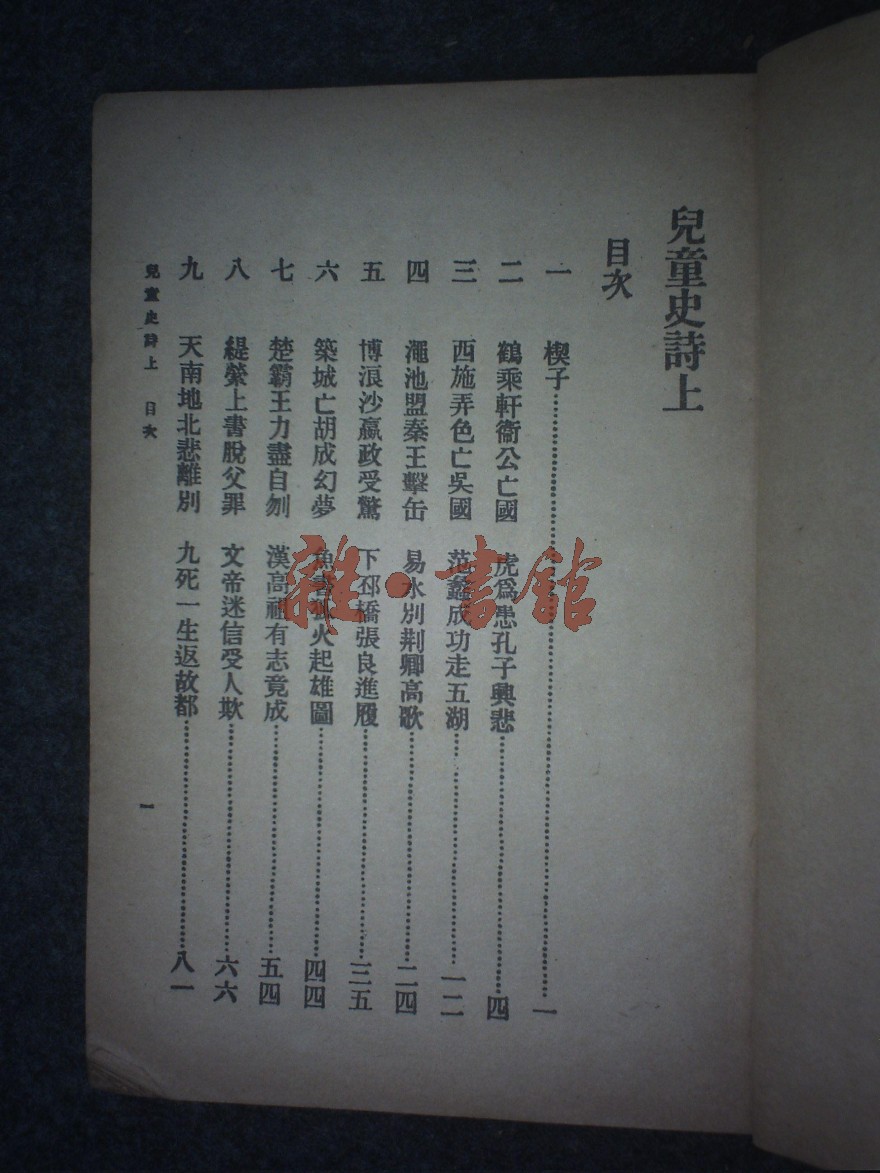 兒童史詩上
目次
一 楔子……一
二 鶴乘軒衞公亡國 虎爲患孔子興悲……四
三 西施弄色亡吳國 范蠡成功走五湖……一二
四 澠池盟秦王擊缶 易水別荆卿高歌……二四
五 博浪沙嬴政受驚 下邳橋張良進履……三五
六 築城亡胡成幻夢 魚書狐火起雄圖……四四
七 楚霸王力盡自刎 漢高祖有志竟成……五四
八 緹縈上書脫父罪 文帝迷信受人欺……六六
九 天南地北悲離別 九死一生返故都……八一
兒童史詩上 目次
一
雜·書館